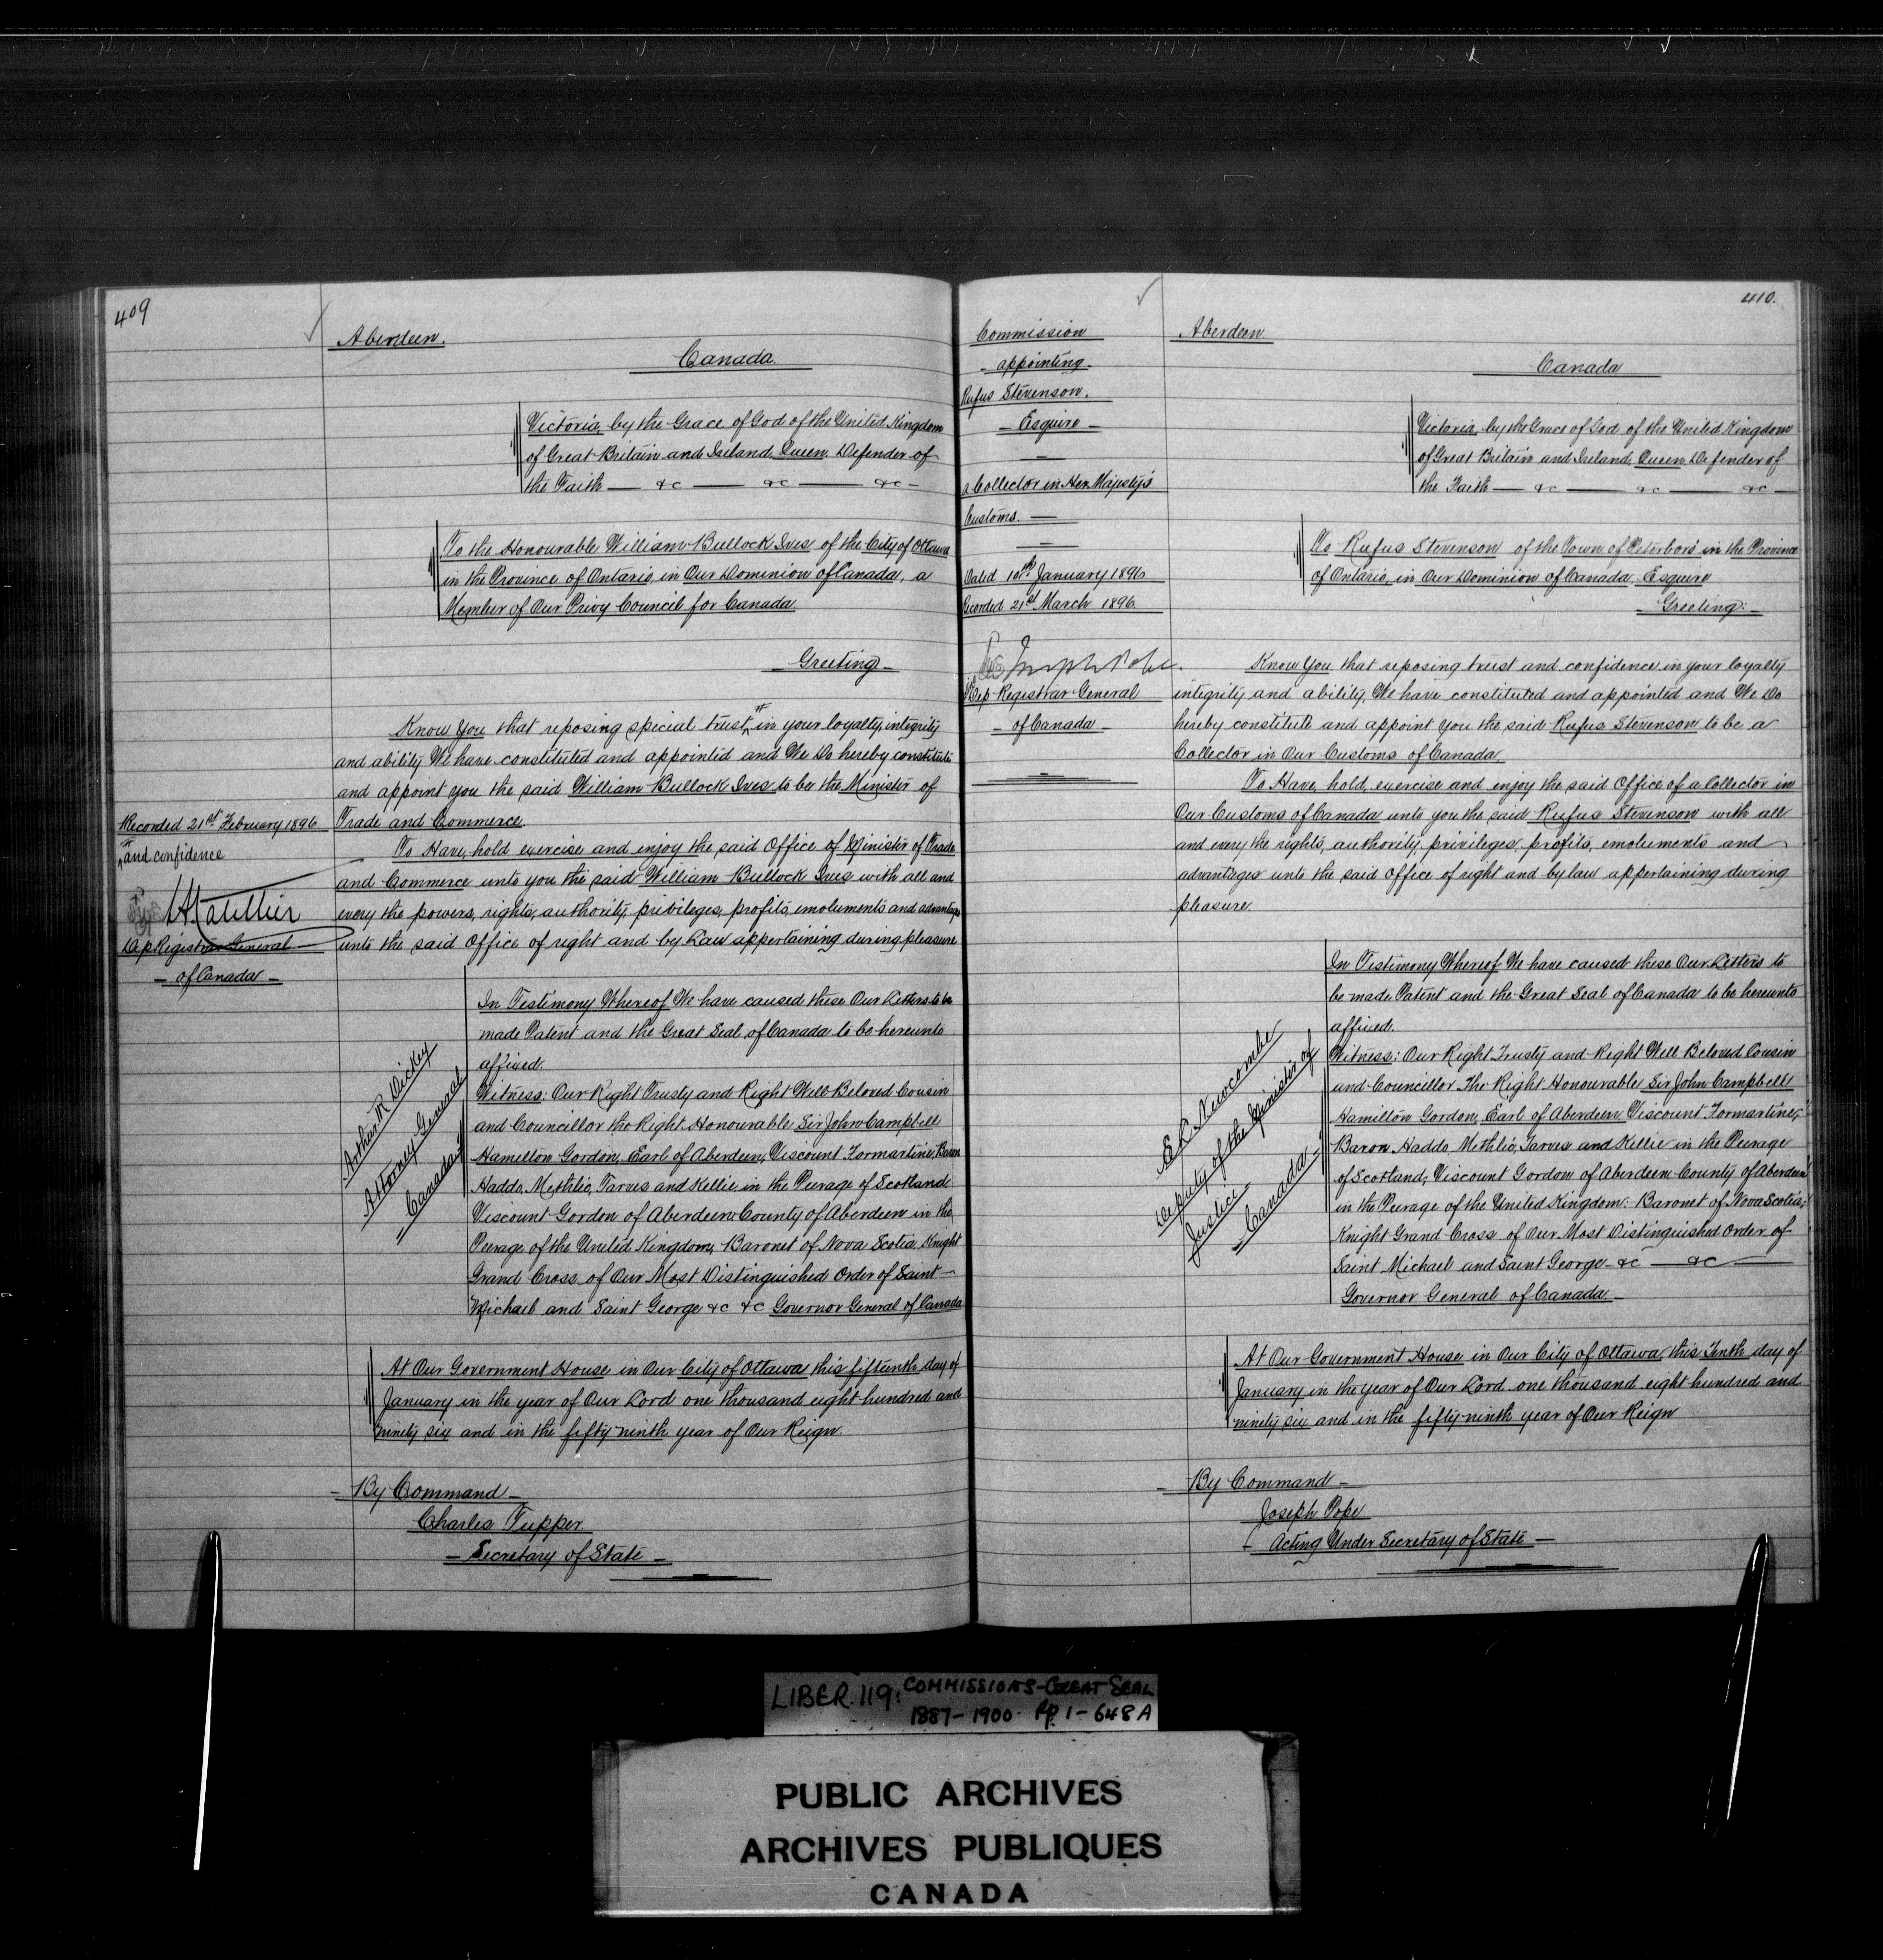 409
Aberdeen.
Canada.
Victoria, by the Grace of God of the United Kingdom
of Great Britain and Ireland, Queen, Defender of
the Faith — &c — &c — &c —
To the Honourable William Bullock Ives of the City of Ottawa
in the Province of Ontario, in Our Dominion of Canada, a
Member of Our Privy Council for Canada.
Greeting —
Know You that reposing special trust # in your loyalty, integrity
and ability We have constituted and appointed and We Do hereby constitute
and appoint you the said William Bullock Ives to be the Minister of
Trade and Commerce.
To Have, hold exercise and enjoy the said Office of Minister of Trade
and Commerce unto you the said William Bullock Ives with all and
every the powers, rights, authority, privileges, profits, emoluments and advantages
unto the said Office of right and by Law appertaining during pleasure
Recorded 21st February 1896
# and confidence
Dep Registrar General
— of Canada —
In Testimony Whereof We have caused these Our Letters to be
made Patent and the Great Seal of Canada to be hereunto
affixed.
Witness: Our Right Trusty and Right Well-Beloved Cousin
and Councillor the Right Honourable Sir John Campbell
Hamilton Gordon, Earl of Aberdeen, Viscount Formartine, Baron
Haddo, Methlic, Tarves and Kellie, in the Peerage of Scotland
Viscount Gordon of Aberdeen County of Aberdeen in the
Peerage of the United Kingdom, Baronet of Nova Scotia, Knight
Grand Cross of Our Most Distinguished Order of Saint —
Michael and Saint George &c &c Governor General of Canada
Arthur R Dickey
Attorney General
— Canada —
At Our Government House in Our City of Ottawa this fifteenth day of
January in the year of Our Lord one thousand eight hundred and
ninety six and in the fifty ninth year of Our Reign.
— By Command —
Charles Tupper.
— Secretary of State —
410.
Commission
— appointing —
Rufus Stevenson.
— Esquire —
a Collector in Her Majesty's
Customs. —
Dated 10th January 1896
Recorded 21st March 1896.
Joseph Pope.
Dep Registrar General
— of Canada —
Aberdeen
Canada
Victoria, by the Grace of God of the United Kingdom
of Great Britain and Ireland, Queen, Defender of
the Faith — &c — &c — &c —
To Rufus Stevenson of the Town of Peterboro' in the Province
of Ontario, in Our Dominion of Canada, Esquire
— Greeting: —
Know You that reposing trust and confidence in your loyalty
integrity and ability, We have constituted and appointed and We Do
hereby constitute and appoint you the said Rufus Stevenson to be a
Collector in Our Customs of Canada
To Have, hold, exercise and enjoy the said Office of a Collector in
Our Customs of Canada unto you the said Rufus Stevenson with all
and every the rights, authority, privileges, profits, emoluments and
advantages unto the said Office of right and by law appertaining during
pleasure.
In Testimony Whereof We have caused these Our Letters to
be made Patent and the Great Seal of Canada to be hereunto
affixed.
Witness: Our Right Trusty and Right Well Beloved Cousin
and Councillor The Right Honourable Sir John Campbell
Hamilton Gordon, Earl of Aberdeen Viscount Formartine,
Baron Haddo, Methlic, Tarves and Kellie in the Peerage
of Scotland; Viscount Gordon of Aberdeen County of Aberdeen
in the Peerage of the United Kingdom: Baronet of Nova Scotia;
Knight Grand Cross of Our Most Distinguished Order of
Saint Michael and Saint George — &c — &c —
Governor General of Canada —
E L Newcombe
Deputy of the Minister of
Justice —
— Canada —
At Our Government House in Our City of Ottawa, this Tenth day of
January in the year of Our Lord one thousand eight hundred and
ninety six and in the fifty-ninth year of Our Reign
— By Command —
Joseph Pope
— Acting Under Secretary of State —
LIBER. 119: COMMISSIONS - GREAT SEAL
1887 - 1900 - Pp. 1 - 648A
PUBLIC ARCHIVES
ARCHIVES PUBLIQUES
CANADA